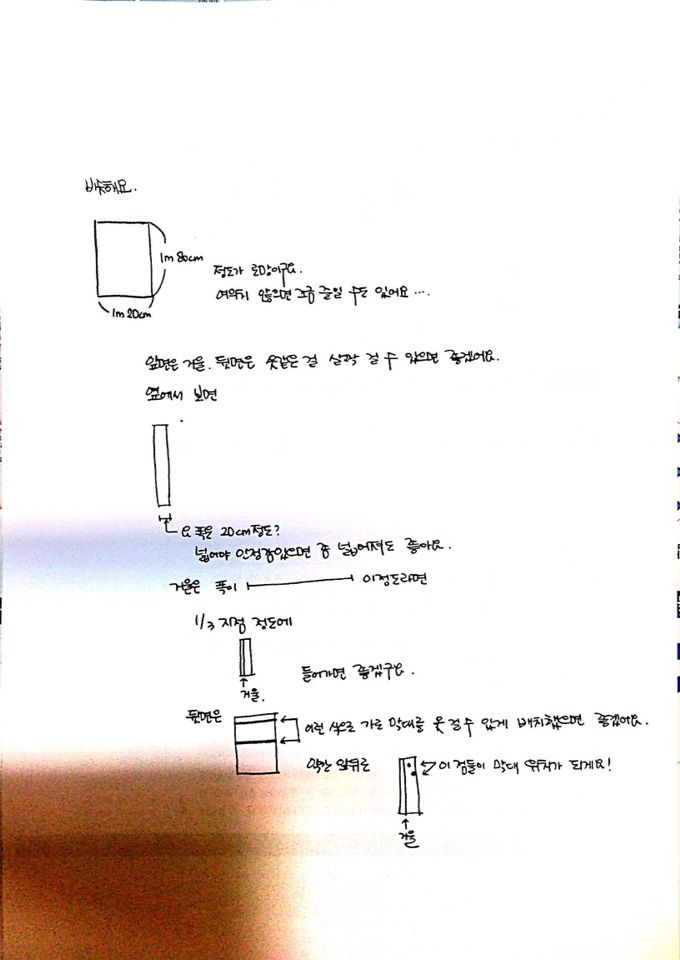 비슷해요.
1m 80cm
정도가 로망이구요.
여의치 않으면 조금 줄일 수도 있어요 ….
1m 20cm
앞면은 거울. 뒷면은 옷같은 걸 살짝 걸 수 있으면 좋겠어요.
옆에서 보면
요 폭은 20cm정도?
넓어야 안정감있으면 좀 넓어져도 좋아요.
거울은 폭이 이정도라면
1/3 지점 정도에
들어가면 좋겠구요.
거울.
뒷면은
이런 식으로 가로 막대를 옷 걸 수 있게 배치했으면 좋겠어요.
약간 앞뒤로
이 점들이 막대 위치가 되게요!
거울